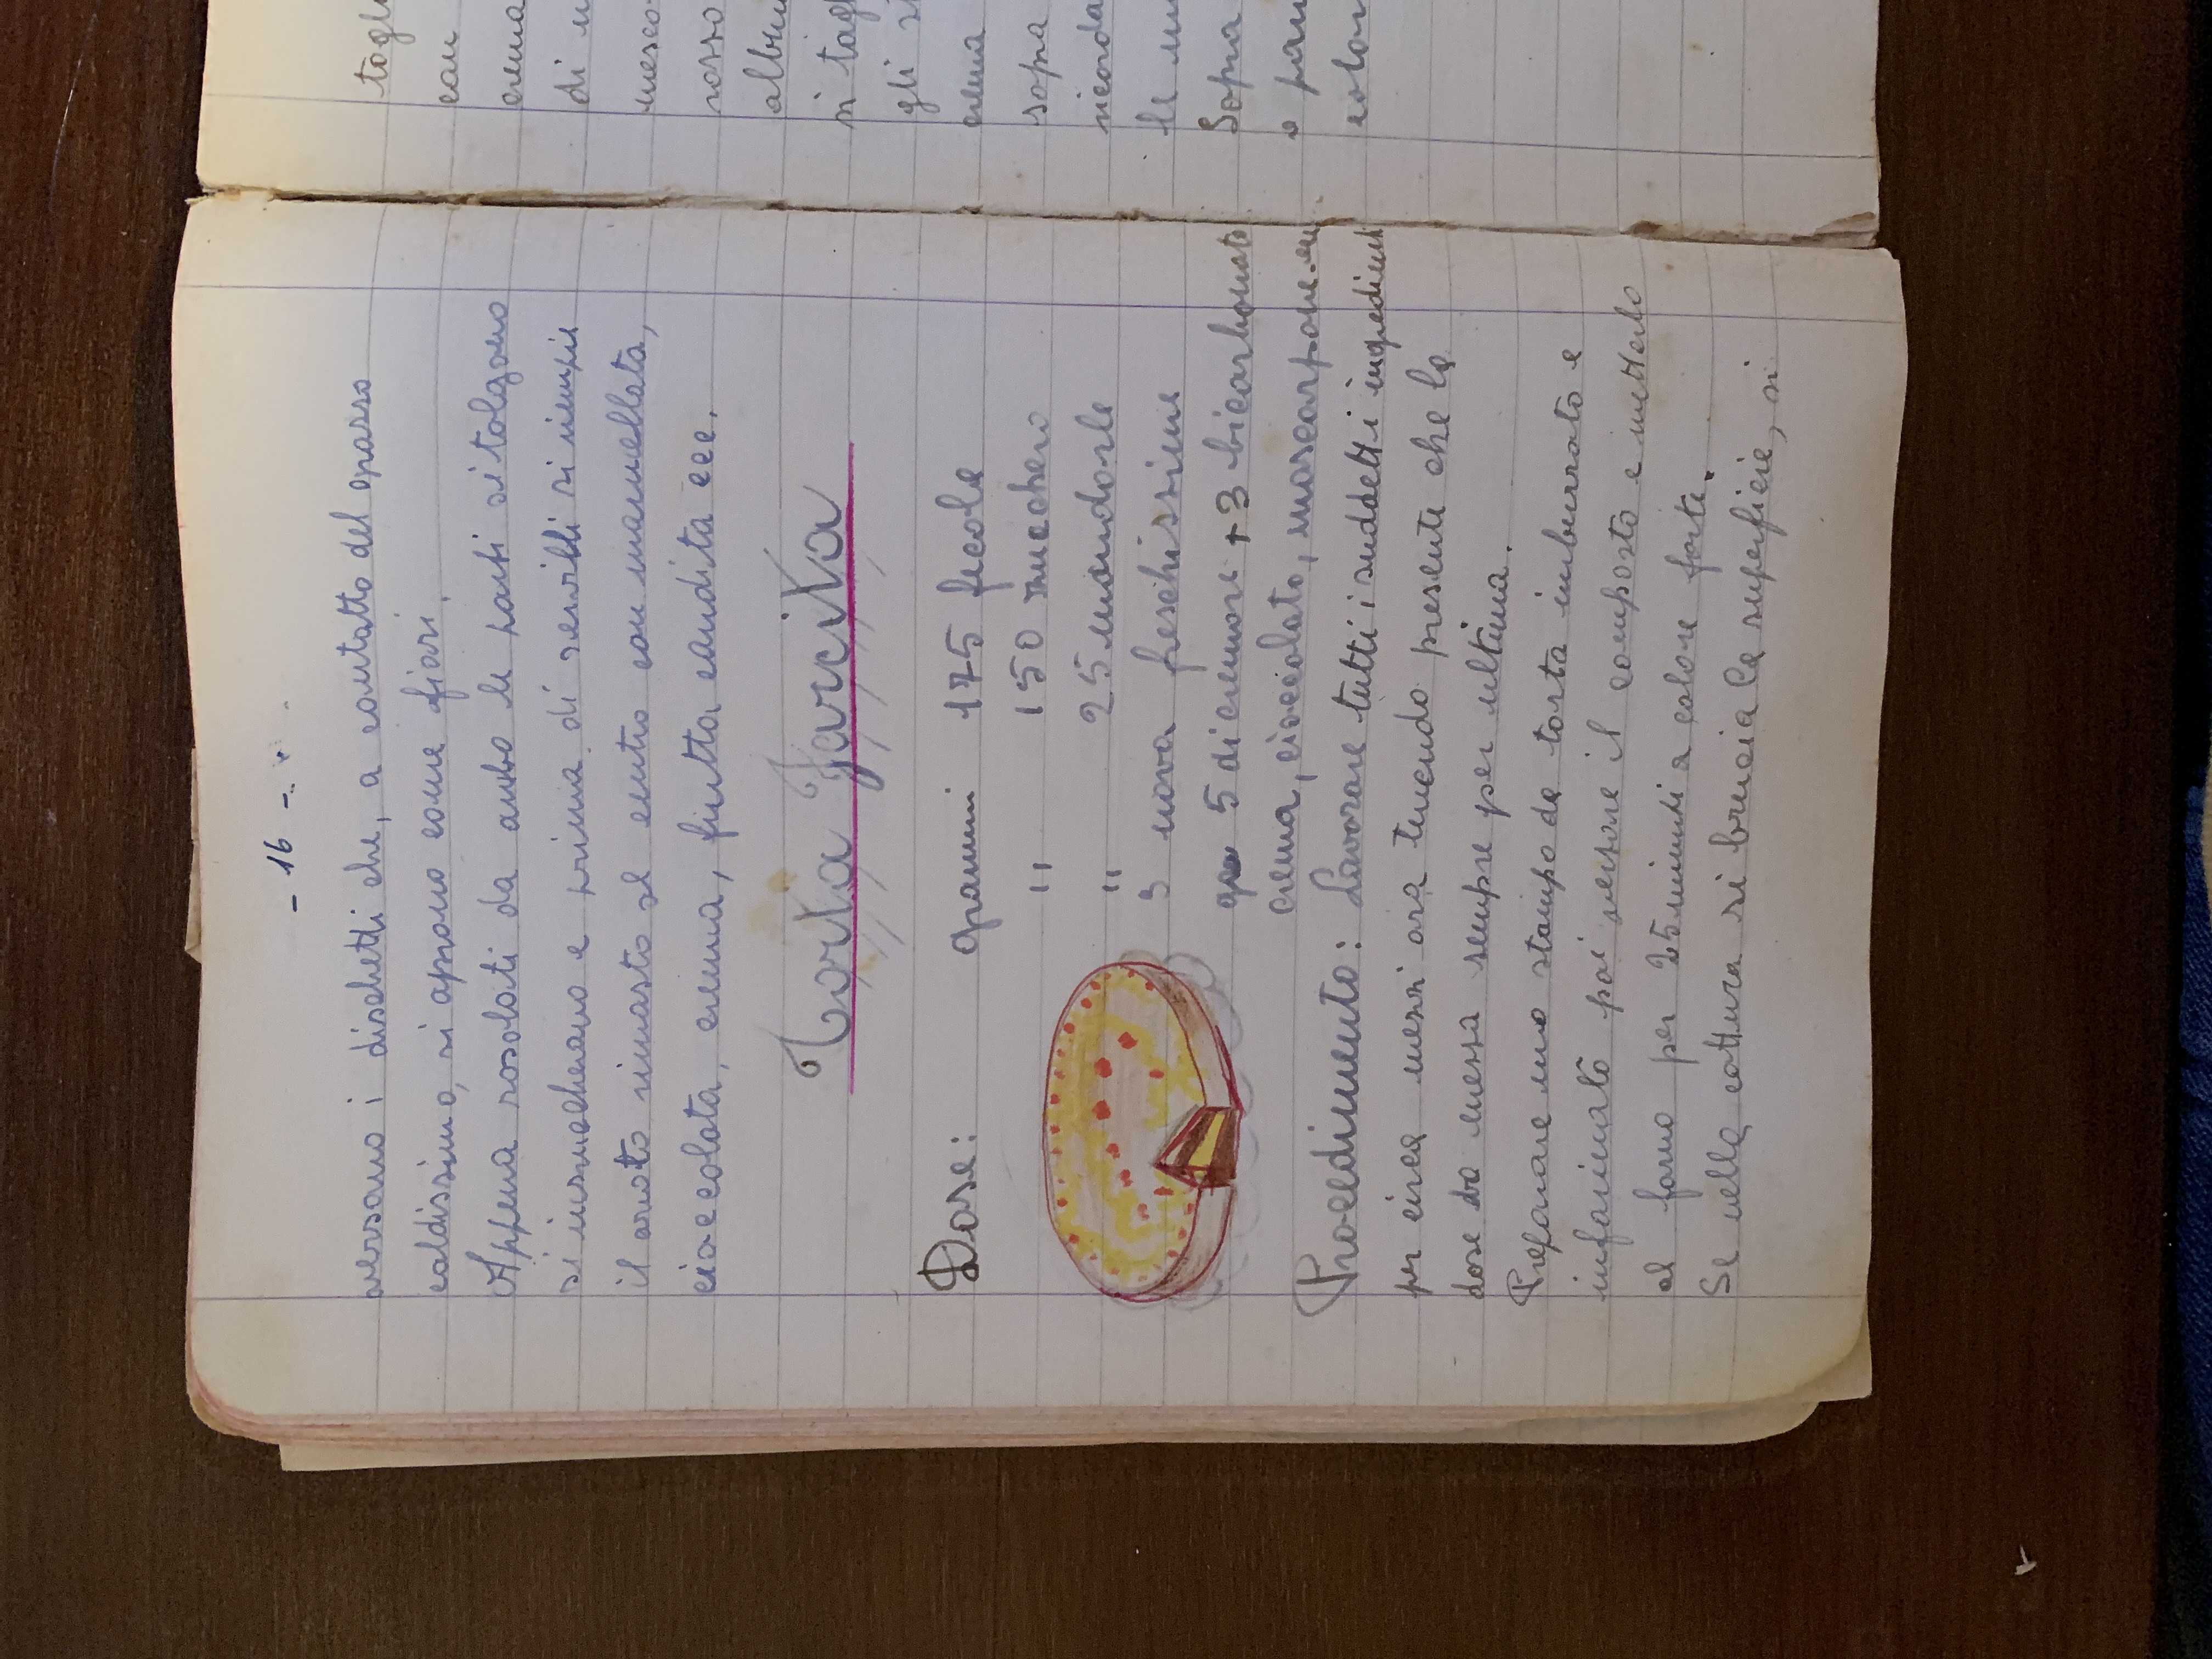 - 16 -
versano i dischetti che, a contatto del grasso
caldissimo, si aprono come fiori.
Appena rosolati da ambo le parti si tolgono
si inzuccherano e prima di servirli si riempie
il vuoto rimasto al centro con marmellata,
cioccolata, crema, frutta candita ecc.
Torta Farcita
Dose: grammi 175 fecola
" 150 zucchero
" 25 mandorle
3 uova freschissime
5 di cremore + 3 bicarbonato
crema, cioccolato, mascarpone
Procedimento: Lavorare tutti i suddetti ingredienti
per circa mezz'ora tenendo presente che la
dose va messa sempre per ultima.
Preparare uno stampo da torta imburrato e
infarinato poi versare il composto e metterlo
al forno per 25 minuti a calore forte.
Se nella cottura si brucia la superficie, si
con
crema
di
rosso
si
gli
crema
sopra
le
Sopra